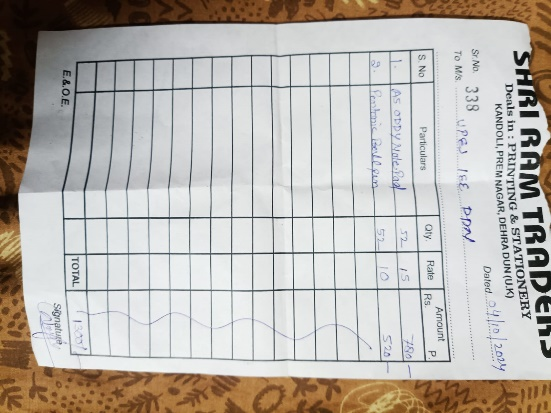 SHRI RAM TRADERS
Deals in : PRINTING & STATIONERY
KANDOLI, PREM NAGAR, DEHRA DUN (U.K)
Sr.No. 338 Dated 24/10/2024
To M/s. UPES DDN
S. No Particulars Qty. Rate Amount
Rs. P.
1. A5 ODDY Note Pad 52 15 780/-
2. Pentonic Ball pen 52 10 520/-
TOTAL 1300/-
E. & O.E.
Signature